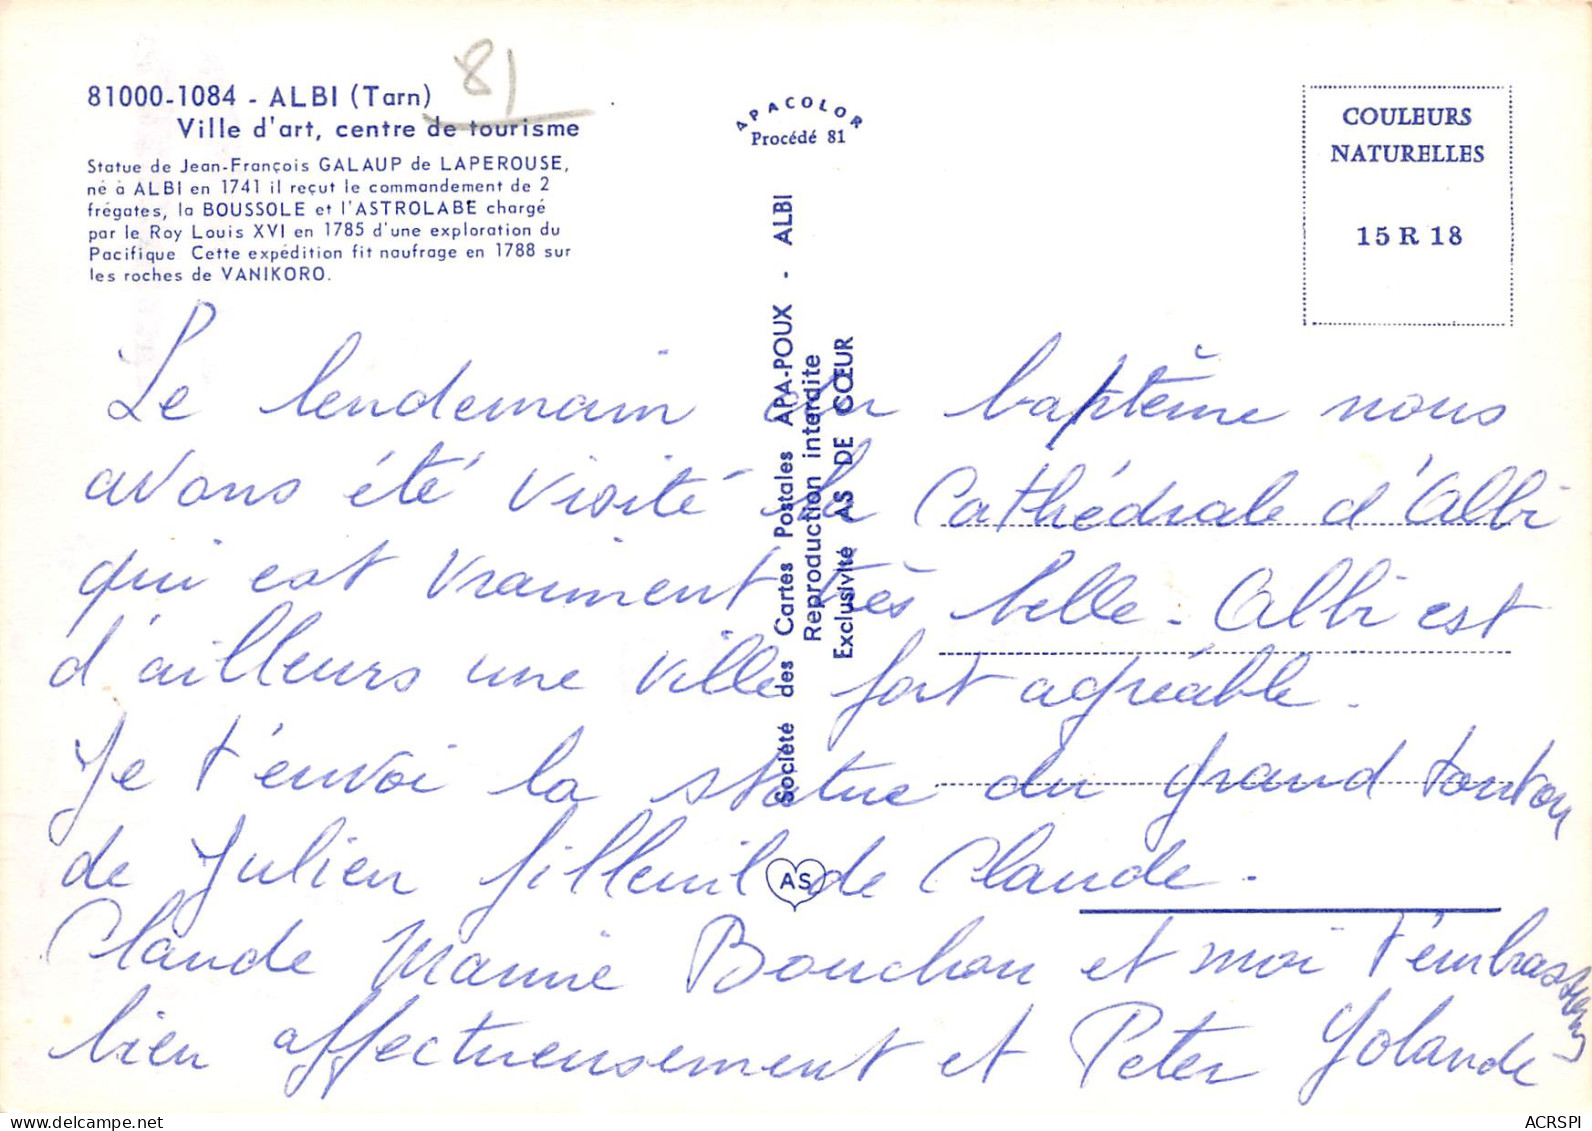 81000-1084 - ALBI (Tarn)
Ville d'art, centre de tourisme
81
Statue de Jean-François GALAUP de LAPEROUSE,
né à ALBI en 1741 il reçut le commandement de 2
frégates, la BOUSSOLE et l'ASTROLABE chargé
par le Roy Louis XVI en 1785 d'une exploration du
Pacifique Cette expédition fit naufrage en 1788 sur
les roches de VANIKORO.
APACOLOR
Procédé 81
COULEURS
NATURELLES
15 R 18
Société des Cartes Postales APA-POUX - ALBI
Reproduction interdite
Exclusivité AS DE CŒUR
AS
Le lendemain du baptême nous
avons été visité la Cathédrale d'Albi
qui est vraiment très belle - Albi est
d'ailleurs une ville fort agréable.
Je t'envoi la statue du grand tonton
de Julien filleuil de Claude.
Claude Mamie Bouchon et moi t'embrassons
bien affectueusement et Peter Yolande
ACRSPI